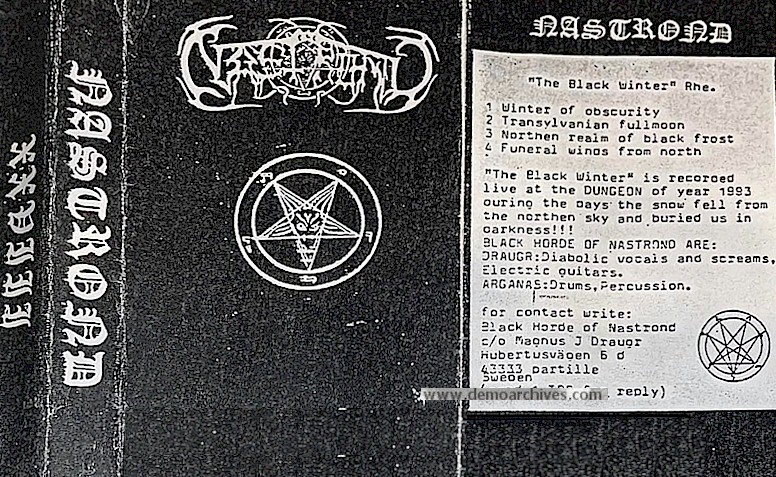 NASTROND
NASTROND
"The Black Winter" Rhe.
1 Winter of obscurity
2 Transylvanian fullmoon
3 Northen realm of black frost
4 Funeral winds from north
"The Black Winter" is recorded
live at the DUNGEON of year 1993
during the days the snow fell from
the northen sky and buried us in
darkness!!!
BLACK HORDE OF NASTROND ARE:
DRAUGR:Diabolic vocals and screams,
Electric guitars.
ARGANAS:Drums,Percussion.
for contact write:
Black Horde of Nastrond
c/o Magnus J Draugr
Hubertusvägen 6 d
43333 partille
Sweden
reply)
www.demoarchives.com